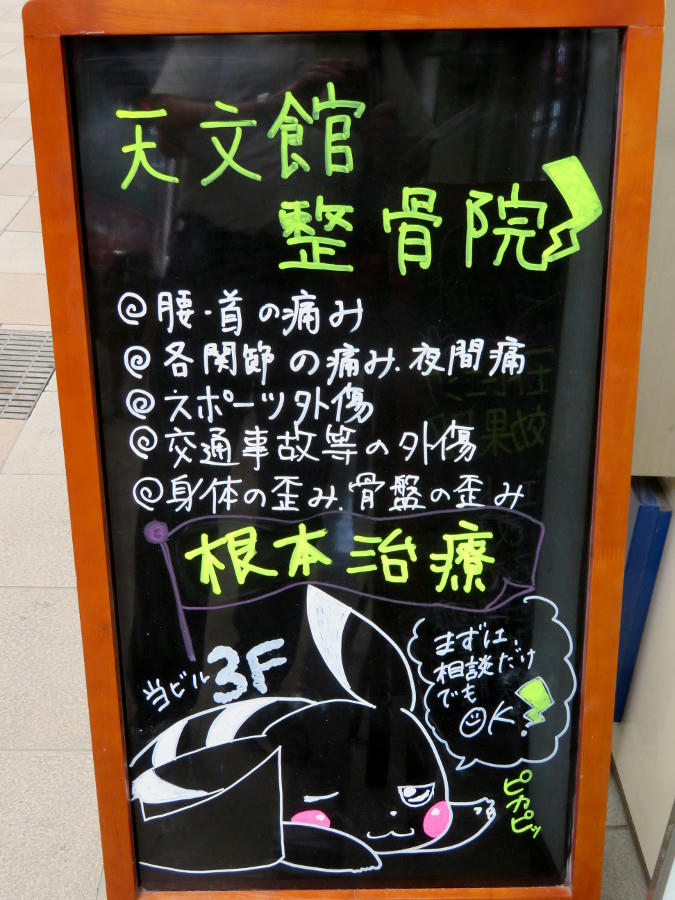 天文館
整骨院
腰・首の痛み
各関節の痛み.夜間痛
スポーツ外傷
交通事故等の外傷
身体の歪み.骨盤の歪み
根本治療
当ビル3F
まずは、
相談だけ
でも
OK!
ピカピッ